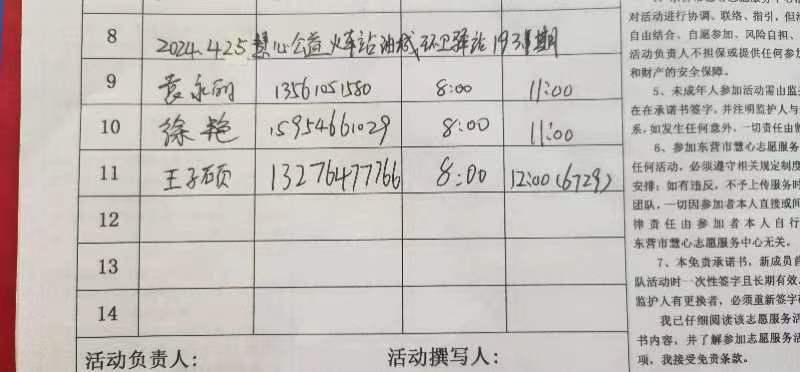 8 2024.4.25 慧心公益火车站油城环卫驿站193期
9 袁永丽 13561051580 8:00 11:00
10 徐艳 15954661029 8:00 11:00
11 王子硕 13276477766 8:00 12:00(6729)
12
13
14
活动负责人: 活动撰写人:
对活动进行协调、联络、指引,但活
自由结合、自愿参加、风险自担、
活动负责人不担保或提供任何参加
和财产的安全保障。
5、未成年人参加活动需由监护
在在承诺书签字,并注明监护人与
系,如发生任何意外,一切责任由
6、参加东营市慧心志愿服务
任何活动,必须遵守相关规定制度
安排;如有违反,不予上传服务时
团队,一切因参加者本人直接或间
律责任由参加者本人自行
东营市慧心志愿服务中心无关。
7、本免责承诺书,新成员首
队活动时一次性签字且长期有效。
监护人有更换者,必须重新签字
我已仔细阅读该志愿服务活
书内容,并了解参加志愿服务活
项,我接受免责条款。